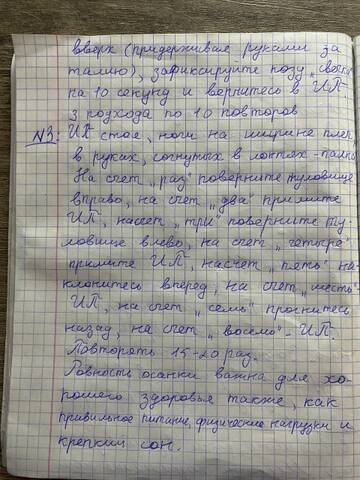 вверх (придерживая руками за
талию), зафиксируйте позу „свечи"
на 10 секунд и вернитесь в ИП-
3 подхода по 10 повторов
№3: ИП стоя, ноги на ширине плеч,
в руках, согнутых в локтях - палка
На счет „раз" поверните туловище
вправо, на счет „два" примите
ИП, насчет „три" поверните ту
ловище влево, на счет „четыре"
примите ИП, насчет „пять" на-
клонитесь вперед, на счет „шесть"
ИП, на счет „семь" прогнитесь
назад, на счет „восемь" - ИП.
Повторять 15-20 раз.
Ровность осанки важна для хо-
рошего здоровья также, как
правильное питание, физические нагрузки и
крепкий сон.